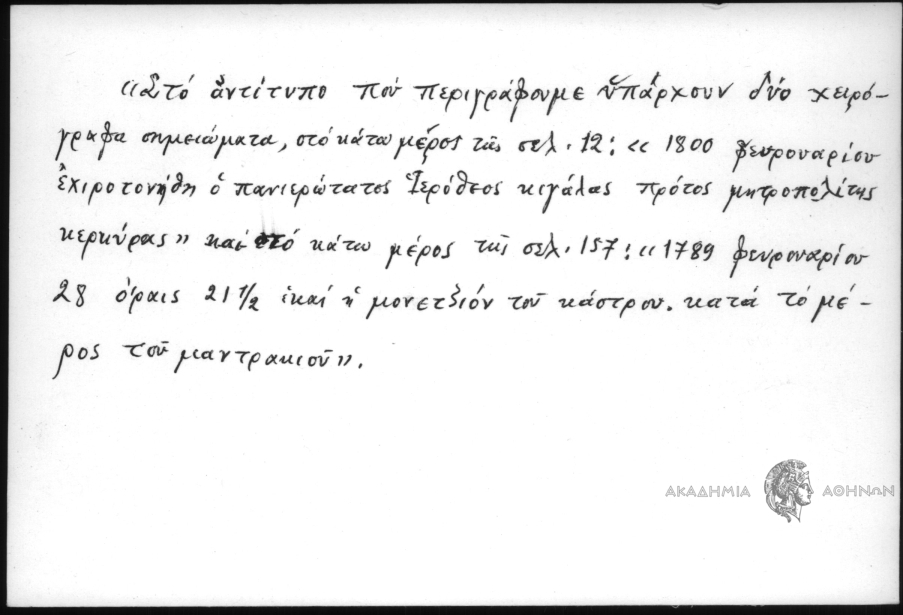 «Στό ἀντίτυπο πού περιγράφουμε ὑπάρχουν δύο χειρό-
γραφα σημειώματα, στό κάτω μέρος τῆς σελ. 12: «1800 φευρουαρίου
ἐχιροτονήθη ὁ πανιερώτατος Ἱερόθεος κιγάλας πρότος μητροπολίτης
κερκύρας» καί στό κάτω μέρος τῆς σελ. 157: «1789 φευρουαρίου
28 ὁραις 21 1/2 ἐκαί ἡ μονετζιόν τοῦ κάστρου. κατά τό μέ-
ρος τοῦ μαντρακιοῦ».
ΑΚΑΔΗΜΙΑ ΑΘΗΝΩΝ